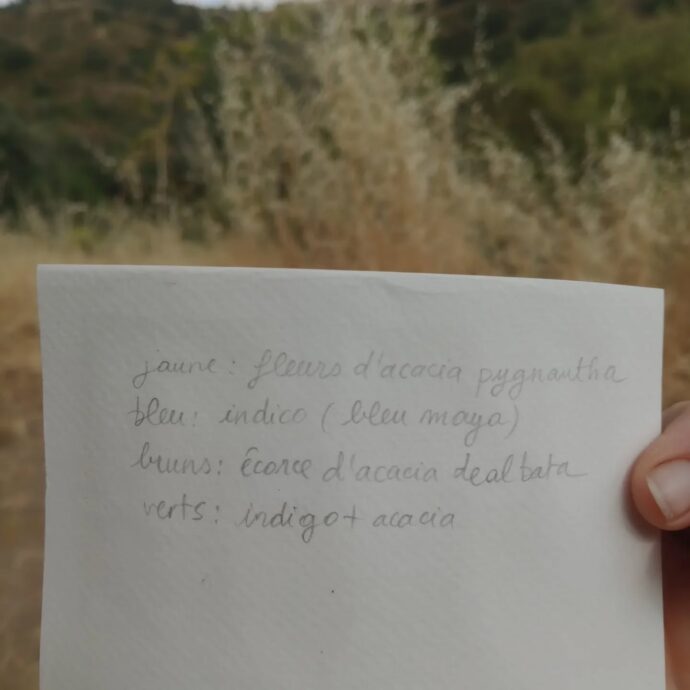 jaune: fleurs d'acacia pygnantha
bleu: indico (bleu maya)
bruns: écorce d'acacia dealbata
verts: indigo + acacia